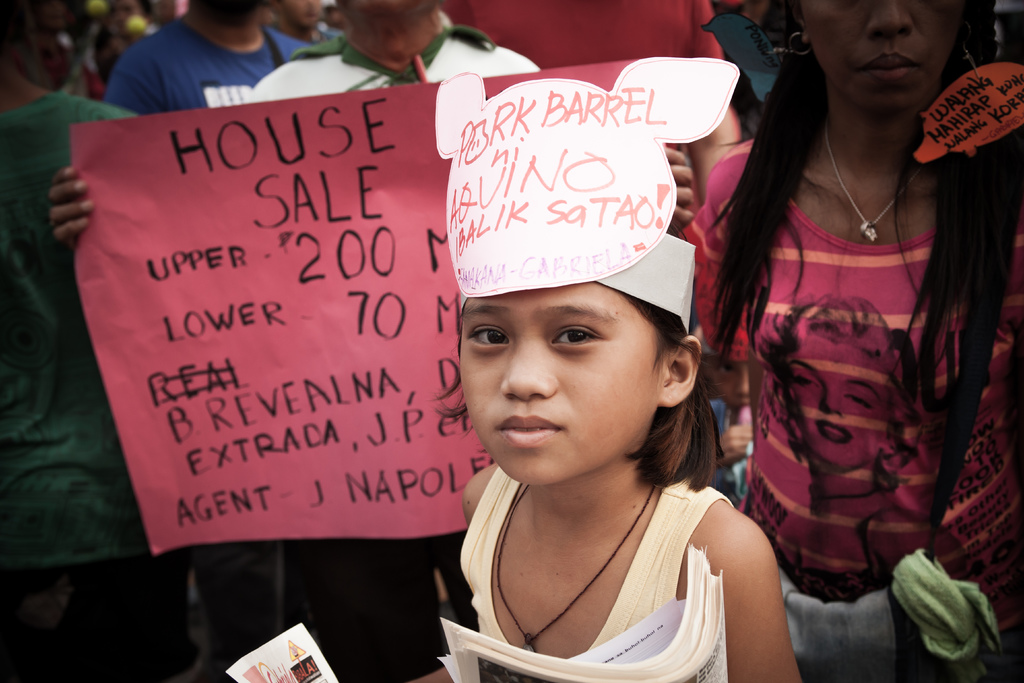 HOUSE
SALE
UPPER - ₱200 M
LOWER - 70 M
REAL
B. REVEALNA, D
EXTRADA, J.P. en
AGENT - J NAPOLE
PORK BARREL
ni
AQUINO
IBALIK SA TAO!
GABRIELA
WALANG
MAHIRAP KUNG
WALANG KORAP